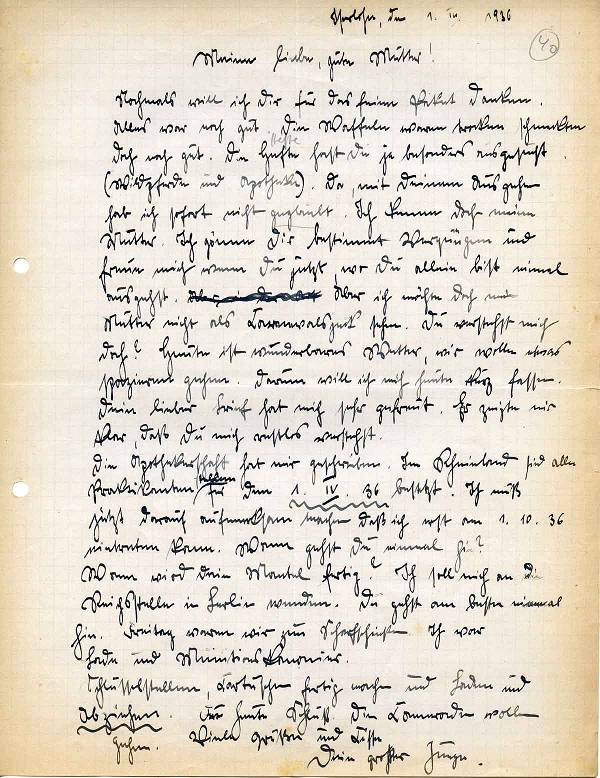 Iserlohn, den 1. III. 1936
40
Meine liebe, gute Mutter!
Nochmals will ich Dir für das feine Paket danken.
Alles war noch gut. Die Waffeln waren trocken schmeckten
doch noch gut. Die Hefte hast Du ja besonders ausgesucht.
(Wildpferde und Apotheke). Da, mit Deinem Ausgehen
hab ich sofort nicht geglaubt. Ich kenne doch meine
Mutter. Ich gönne Dir bestimmt Vergnügen und
freue mich wenn Du jetzt, wo Du allein bist einmal
ausgehst. Aber ich möchte doch meine
Mutter nicht als sehn. Du verstehst mich
doch? Heute ist wunderbares Wetter, wir wollen etwas
spazieren gehen. Darum will ich mich heute kurz fassen.
Dein lieber Brief hat mich sehr gefreut. Er zeigte mir
klar, daß Du mich restlos verstehst.
Die Apothekerschaft hat mir geschrieben. Im Rheinland sind alle
Praktikantenstellen für den 1. IV. 36 besetzt. Ich muß
jetzt darauf aufmerksam machen daß ich erst am 1. 10. 36
eintreten kann. Wann gehst Du einmal hin?
Wann wird Dein Mantel fertig? Ich soll mich an die
Reichsstelle in Berlin wenden. Du gehst am besten einmal
hin. Freitag waren wir zum Scharfschießen. Ich war
Lade und Munitionskanonier.
Kartuschen fertig machen und Laden und
Abziehen. Für heute Schluß. Die Kameraden wollen
gehen. Viele Grüße und Küsse
Dein großer Junge.